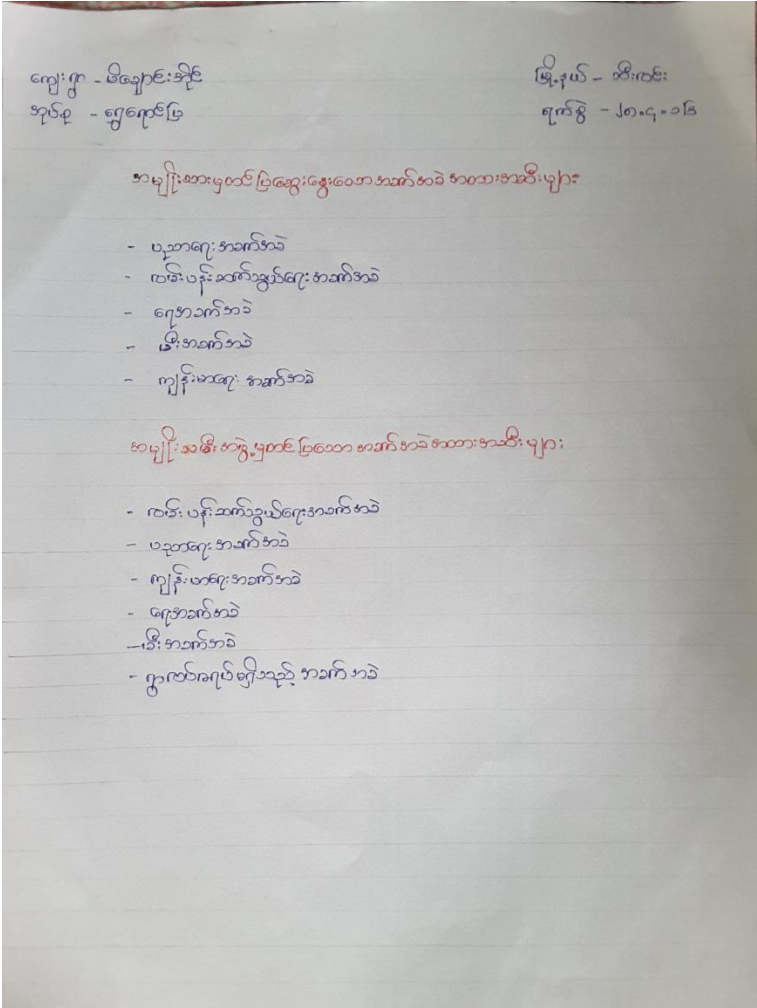 ကျေးရွာ - မိချောင်းအိုင် မြို့နယ် - ဘီးလင်း
အုပ်စု - ရွှေရောင်ပြ ရက်စွဲ - ၂၈.၄.၁၆
အမျိုးသားမှတင်ပြဆွေးနွေးသော အခက်အခဲ အတားအဆီးများ
- ပညာရေးအခက်အခဲ
- လမ်းပန်းဆက်သွယ်ရေးအခက်အခဲ
- ရေအခက်အခဲ
- မီးအခက်အခဲ
- ကျန်းမာရေး အခက်အခဲ
အမျိုးသမီးအဖွဲ့မှတင်ပြသော အခက်အခဲအတားအဆီးများ
- လမ်းပန်းဆက်သွယ်ရေးအခက်အခဲ
- ပညာရေးအခက်အခဲ
- ကျန်းမာရေးအခက်အခဲ
- ရေအခက်အခဲ
- မီးအခက်အခဲ
- ရွာလယ်အရပ်မရှိသည့် အခက်အခဲ